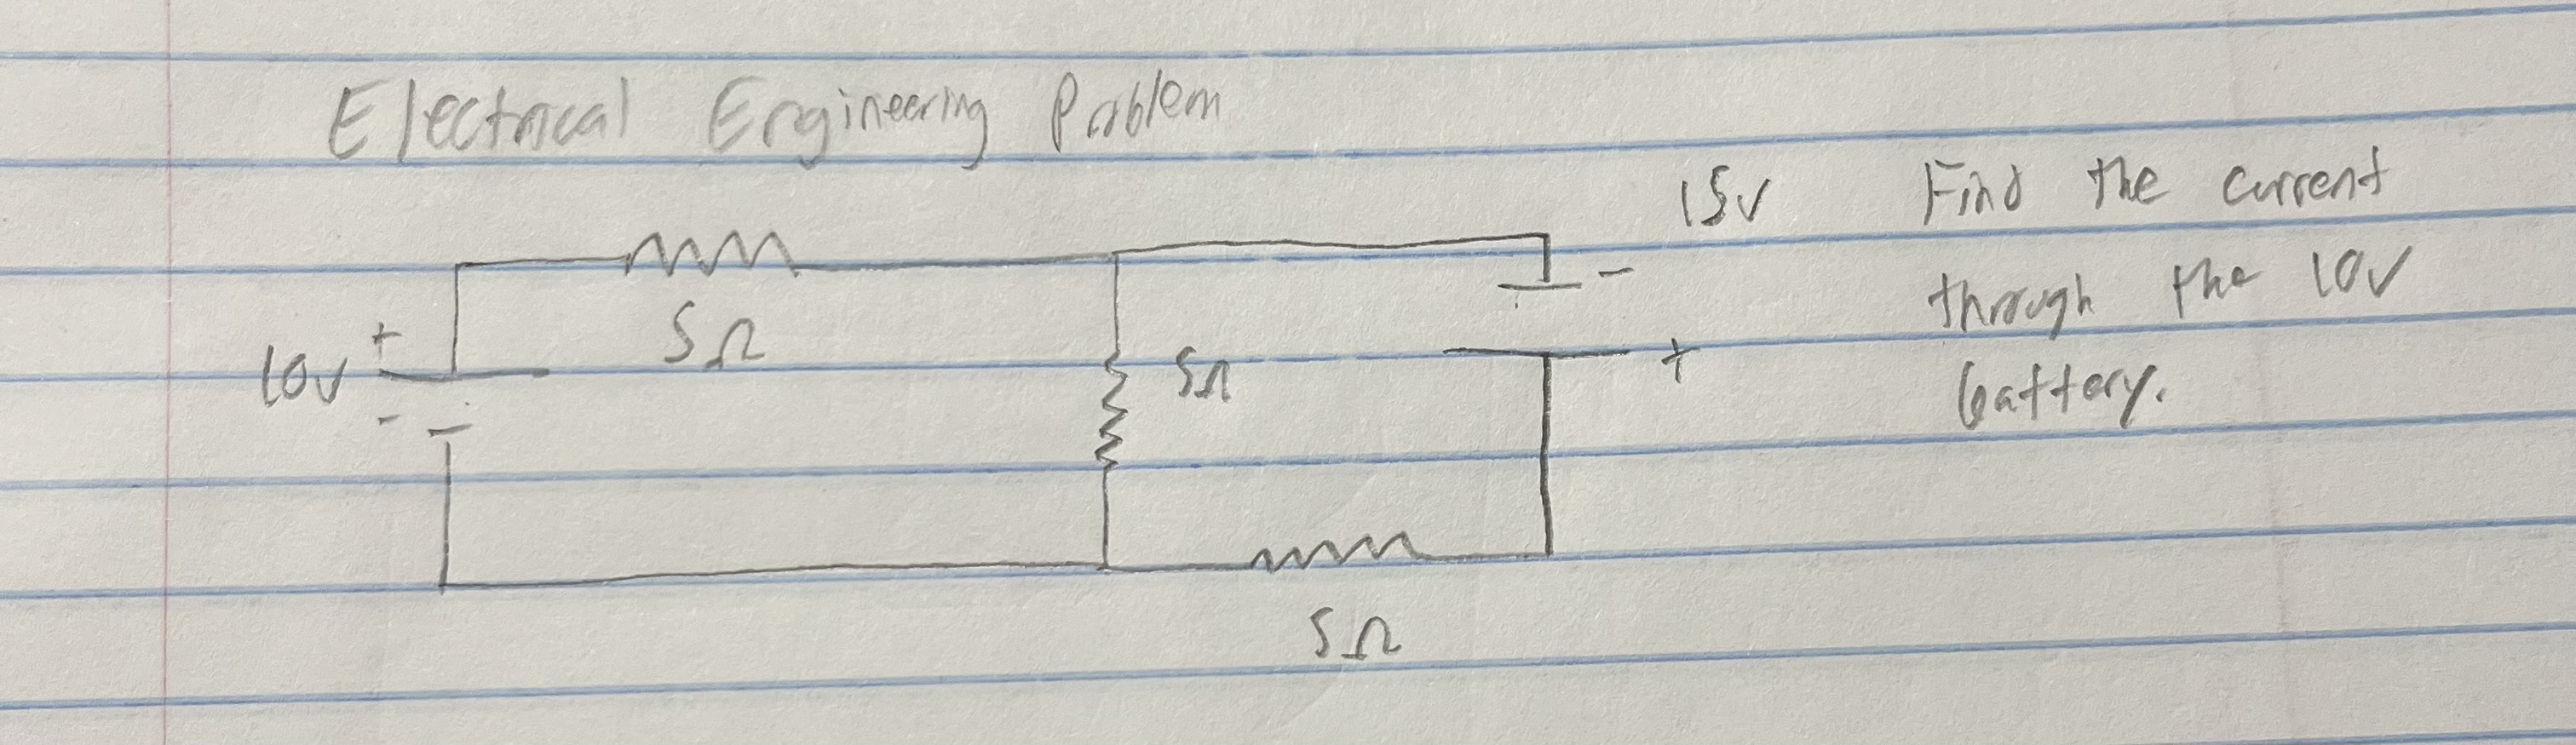 Electrical Engineering Problem
15v
Find the current
through the 10v
battery.
-
+
5Ω
10v
-
5Ω
+
5Ω